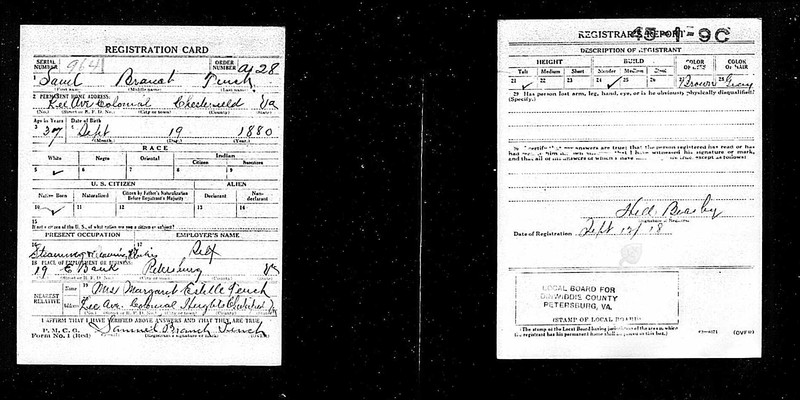 REGISTRATION CARD
SERIAL NUMBER 984 ORDER NUMBER A 28
1 Saml Branch Tench
(First name) (Middle name) (Last name)
2 PERMANENT HOME ADDRESS:
Lee Ave Colonial Chesterfield Va
(No.) (Street or R. F. D. No.) (City or town) (County) (State)
Age in Years Date of Birth
3 37 4 Sept 19 1880
(Month.) (Day.) (Year.)
RACE
White Negro Oriental Indian
Citizen Noncitizen
5 ✓ 6 7 8 9
U. S. CITIZEN ALIEN
Native Born Naturalized Citizen by Father's Naturalization Before Registrant's Majority Declarant Non-declarant
10 ✓ 11 12 13 14
15
If not a citizen of the U. S., of what nation are you a citizen or subject?
PRESENT OCCUPATION EMPLOYER'S NAME
16 17
Self
18 PLACE OF EMPLOYMENT OR BUSINESS:
19 E Bank Petersburg Va
(No.) (Street or R. F. D. No.) (City or town) (County) (State)
NEAREST RELATIVE
Name 19 Mrs Margaret Estelle Tench
Address 20 Lee Ave. Colonial Heights
(No.) (Street or R. F. D. No.) (City or town) (County) (State)
I AFFIRM THAT I HAVE VERIFIED ABOVE ANSWERS AND THAT THEY ARE TRUE
P. M. G. O.
Form No. 1 (Red) Samuel Branch Tench
(Registrant's signature or mark) (OVER)
REGISTRAR'S REPORT
45-1-9 C
DESCRIPTION OF REGISTRANT
HEIGHT BUILD COLOR OF EYES COLOR OF HAIR
Tall Medium Short Slender Medium Stout
21 ✓ 22 23 24 ✓ 25 26 27 Brown 28 Gray
29 Has person lost arm, leg, hand, eye, or is he obviously physically disqualified?
(Specify.)
30 I certify that my answers are true; that the person registered has read or has had read to him his own answers; that I have witnessed his signature or mark, and that all of his answers of which I have knowledge are true, except as follows:
Beasley
(Signature of Registrar)
Date of Registration Sept 12/18
LOCAL BOARD FOR
DINWIDDIE COUNTY
PETERSBURG, VA.
(STAMP OF LOCAL BOARD)
(The stamp of the Local Board having jurisdiction of the area in which the registrant has his permanent home shall be placed in this box.)
(OVER)